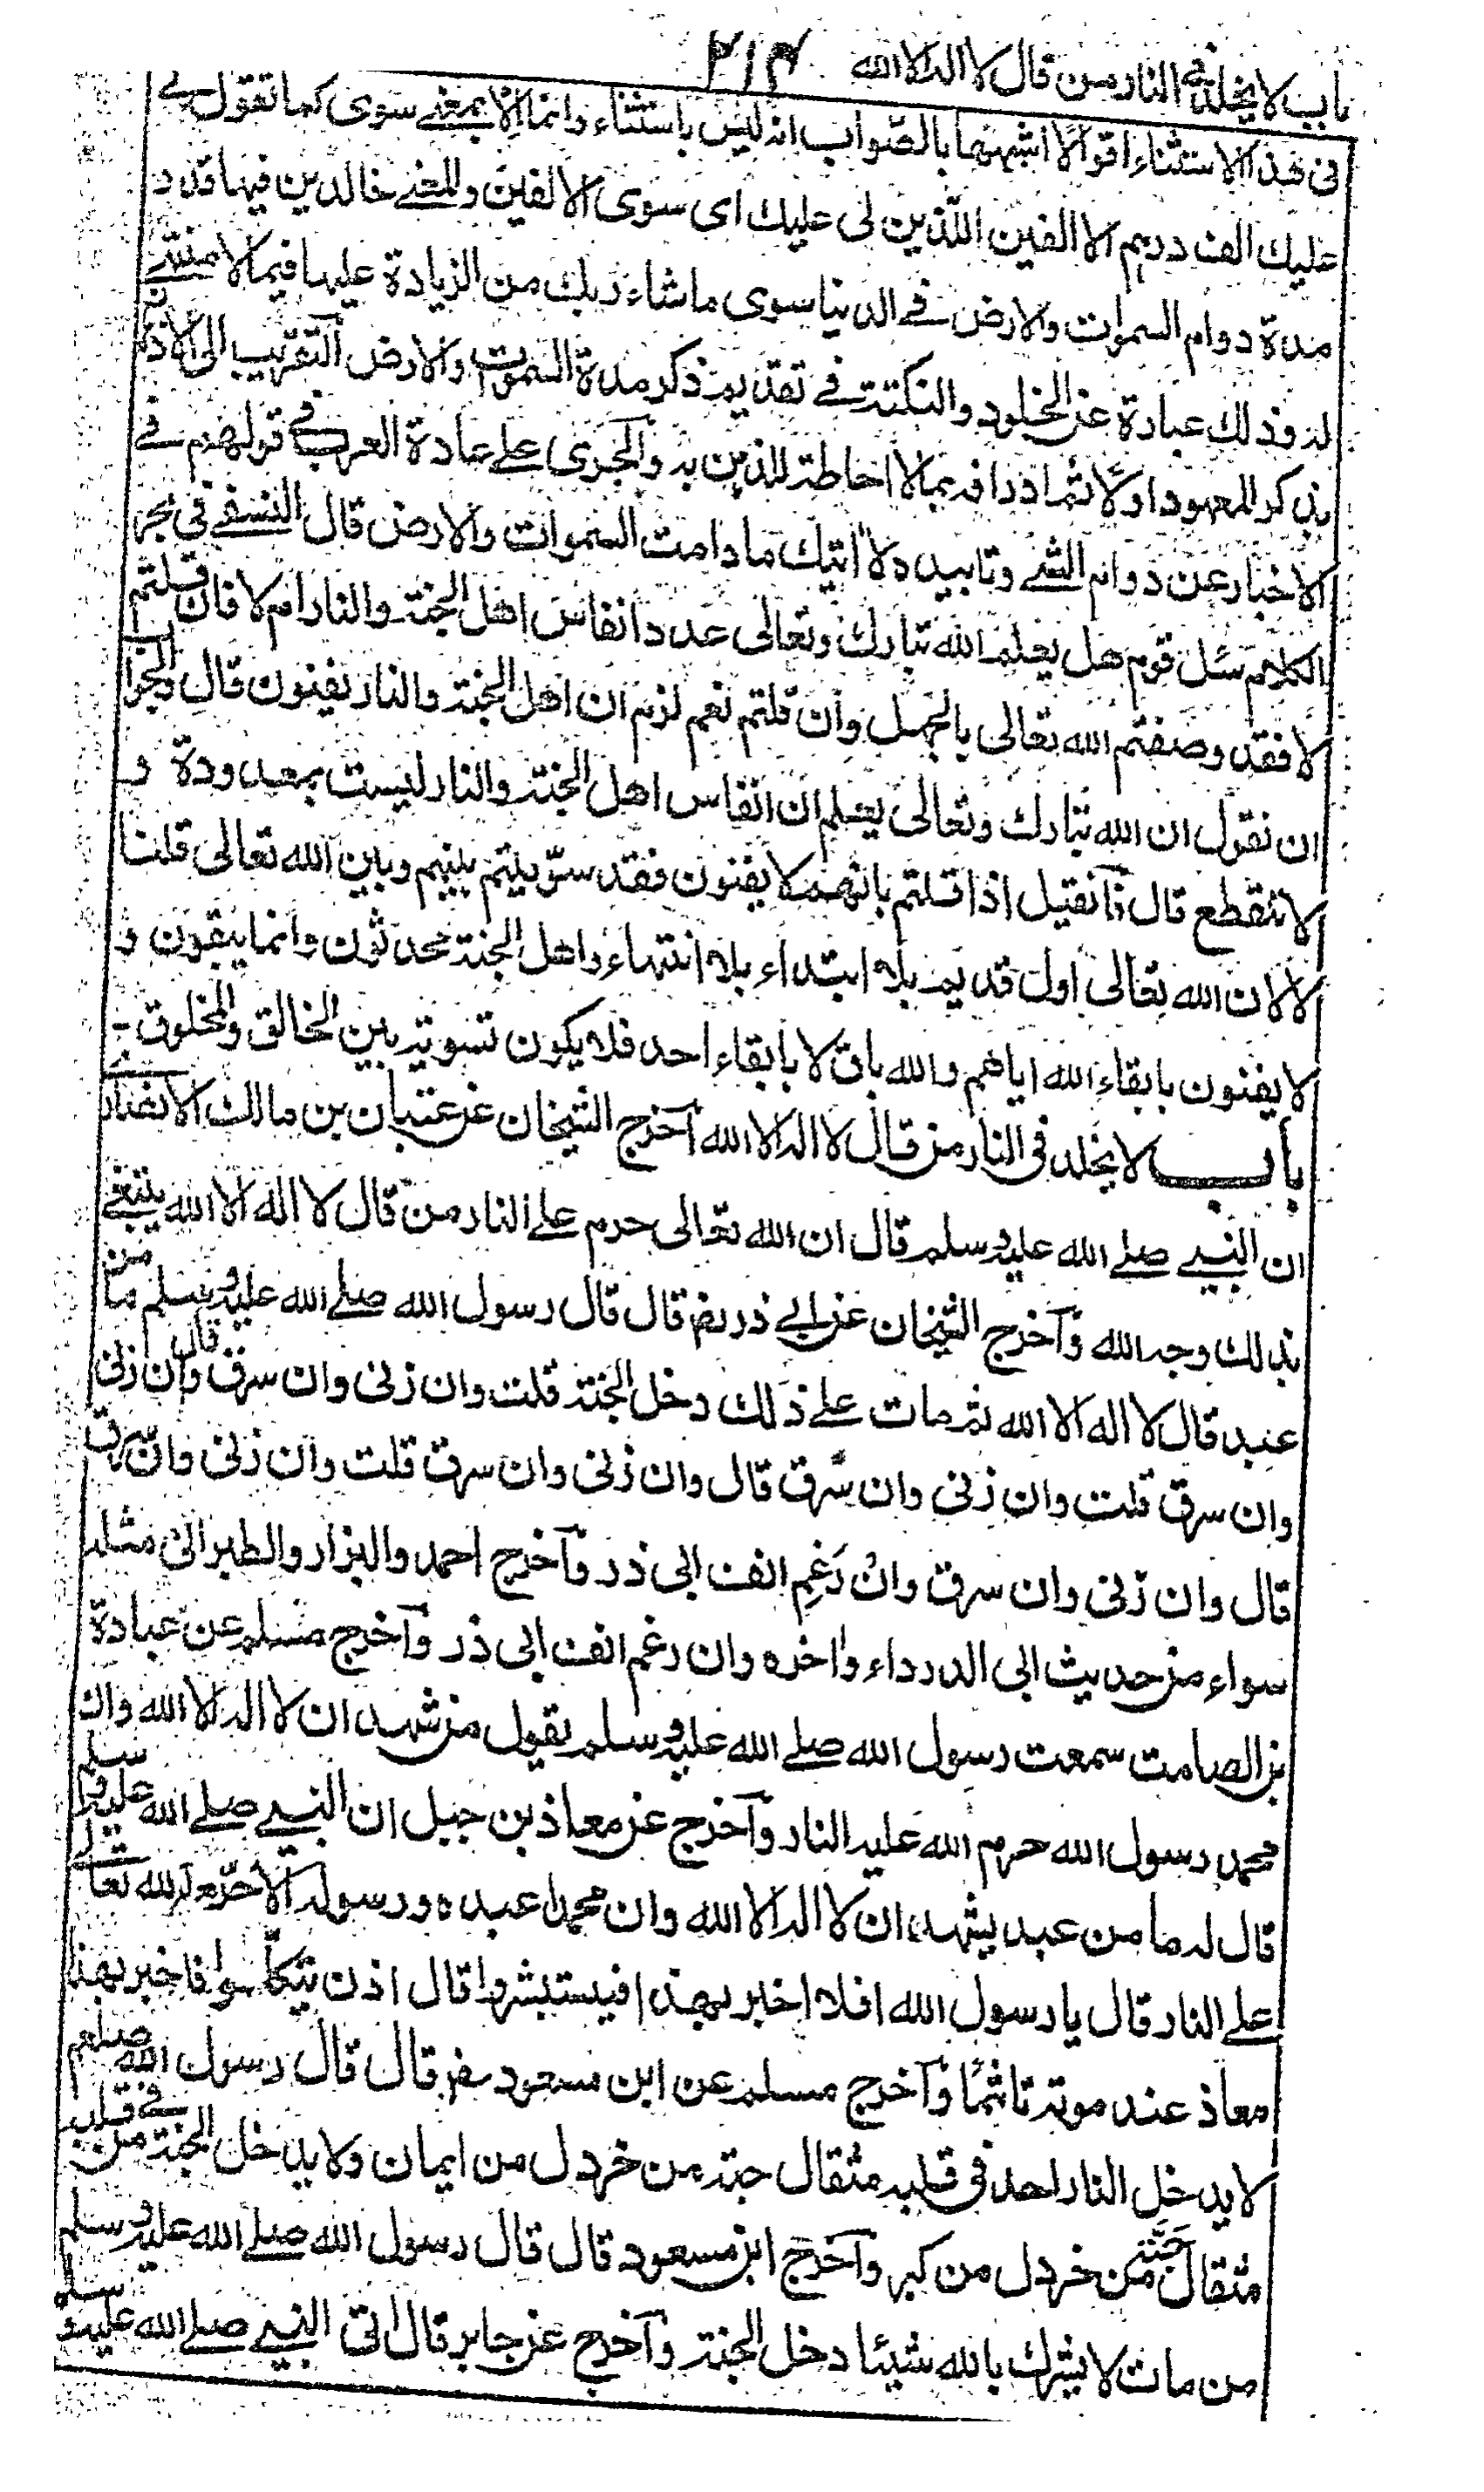 باب لا يخلد في النار من قال لا اله الا الله ٢١٣
في هذا الاستثناء اقوالا اشبهها بالصواب انه ليس باستثناء وانما الا بمعنے سوى كما تقول لے
عليك الف درهم الا الفين اللذين لى عليك اى سوى الالفين والمعنے خالدين فيها قدر
مدة دوام السموات والارض فے الدنيا سوى ما شاء ربك من الزيادة عليها فيما لا منتهے
له وذلك عبارة عن الخلود والنكتة فے تقديم ذكر مدة السموات والارض التقريب الى الاذهان
بذكر المعهود اولا ثم اردافه بما لا احاطة للذهن به والجرى علے عادة العرب في قولهم فے
الاخبار عن دوام الشئے وتابيده لا اتيك ما دامت السموات والارض قال النسفے في بحر
الكلام سئل قوم هل يعلم الله تبارك وتعالى عدد انفاس اهل الجنة والنار ام لا فان قلتم
لا فقد وصفتم الله تعالى بالجهل وان قلتم نعم لزم ان اهل الجنة والنار يفنون قال والجواب
ان نقول ان الله تبارك وتعالى يعلم ان انفاس اهل الجنة والنار ليست بمعدودة و
لا تنقطع قال فان قيل اذا قلتم بانهم لا يفنون فقد سويتم بينهم وبين الله تعالى قلنا
لا لان الله تعالى اول قديم بلا ابتداء بلا انتهاء واهل الجنة محدثون وانما يبقون و
لا يفنون بابقاء الله اياهم والله باق لا بابقاء احد فلا يكون تسوية بين الخالق والمخلوق -
باب لا يخلد في النار من قال لا اله الا الله آخرج الشيخان عن عتبان بن مالك الانصارى
ان النبے صلے الله عليه وسلم قال ان الله تعالى حرم علے النار من قال لا اله الا الله يبتغے
بذلك وجه الله وآخرج الشيخان عن ابے ذر رض قال قال رسول الله صلے الله عليه وسلم ما من
عبد قال لا اله الا الله ثم مات علے ذلك دخل الجنة قلت وان زنى وان سرق قال وان زنى
وان سرق قلت وان زنى وان سرق قال وان زنى وان سرق قلت وان زنى وان سرق
قال وان زنى وان سرق وان رغم انف ابى ذر وآخرج احمد والبزار والطبرانى مثله
سواء من حديث ابى الدرداء واخره وان رغم انف ابى ذر وآخرج مسلم عن عبادة
بن الصامت سمعت رسول الله صلے الله عليه وسلم يقول من شهد ان لا اله الا الله وان
محمد رسول الله حرم الله عليه النار وآخرج عن معاذ بن جبل ان النبے صلے الله عليه وسلم
قال له ما من عبد يشهد ان لا اله الا الله وان محمدا عبده ورسوله الا حرمه الله تعالے
علے النار قال يا رسول الله افلا اخبر بهذا فيستبشروا قال اذن يتكلوا فاخبر بهذا
معاذ عند موته تاثما وآخرج مسلم عن ابن مسعود رض قال قال رسول الله صلعم
لا يدخل النار احد في قلبه مثقال حبة من خردل من ايمان ولا يدخل الجنة من فے قلبه
مثقال حبة من خردل من كبر وآخرج ابن مسعود قال قال رسول الله صلے الله عليه وسلم
من مات لا يشرك بالله شيئا دخل الجنة وآخرج عن جابر قال اتى النبے صلے الله عليه وسلم